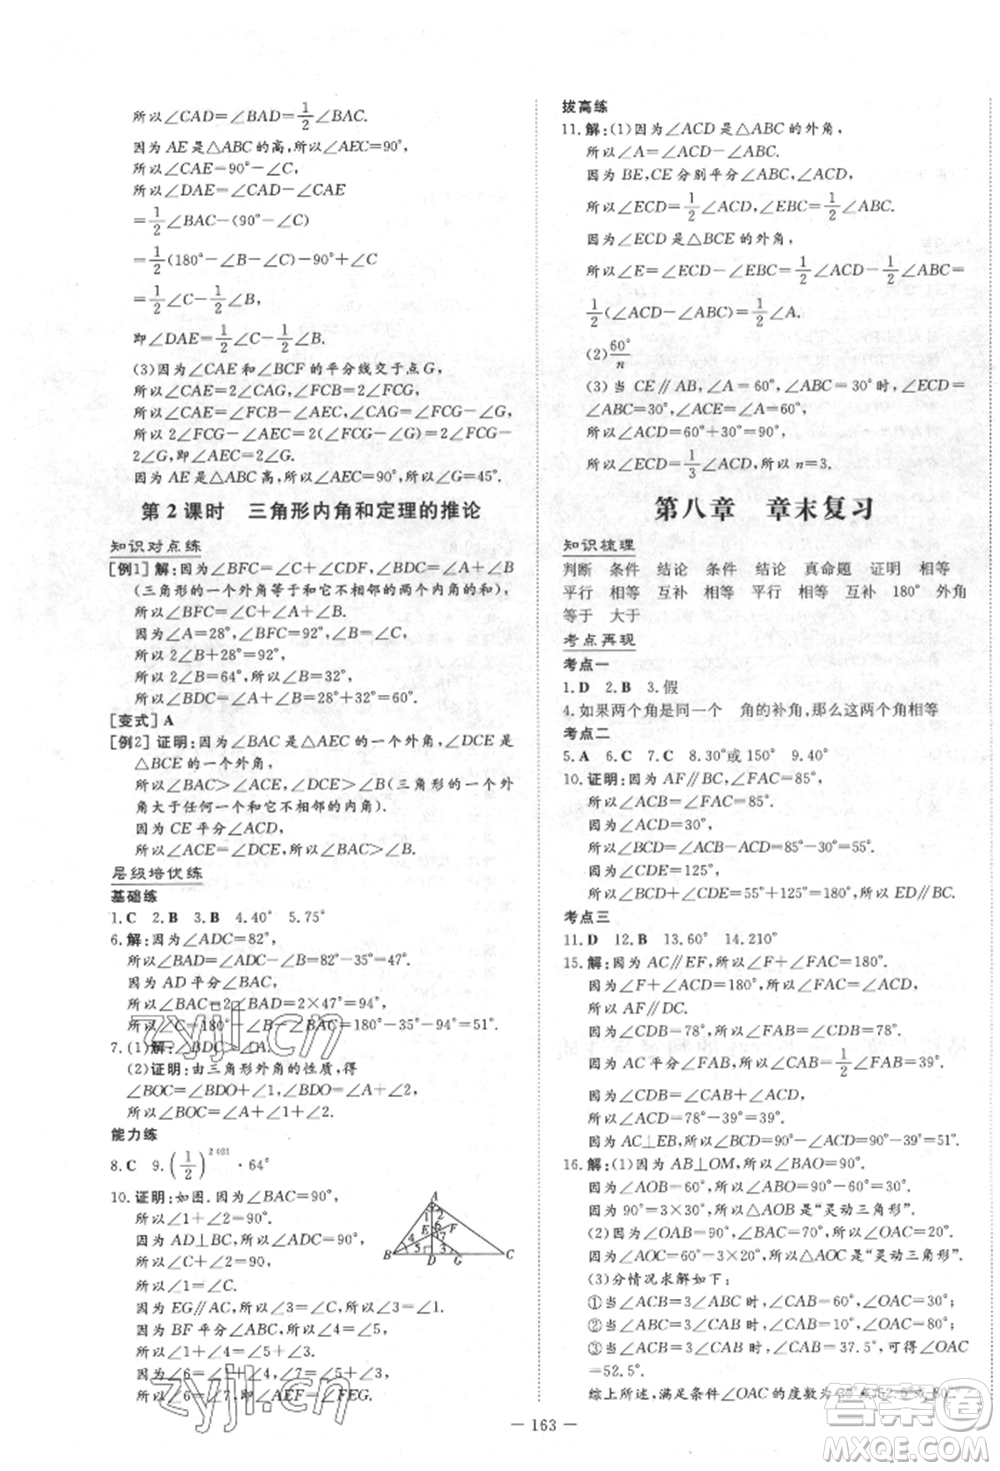 所以∠CAD=∠BAD=1/2∠BAC.
因为 AE 是△ABC 的高,所以∠AEC=90°,
所以∠CAE=90°-∠C,
所以∠DAE=∠CAD-∠CAE
=1/2∠BAC-(90°-∠C)
=1/2(180°-∠B-∠C)-90°+∠C
=1/2∠C-1/2∠B,
即∠DAE=1/2∠C-1/2∠B.
(3)因为∠CAE和∠BCF的平分线交于点G,
所以∠CAE=2∠CAG,∠FCB=2∠FCG,
因为∠CAE=∠FCB-∠AEC,∠CAG=∠FCG-∠G,
所以 2∠FCG-∠AEC=2(∠FCG-∠G)=2∠FCG-2∠G,
所以∠AEC=2∠G.
因为 AE 是高,所以∠AEC=90°,所以∠G=45°.
第2课时 三角形内角和定理的推论
知识对点练
[例1]解:因为∠BFC=∠C+∠CDF,∠BDC=∠A+∠B
(三角形的一个外角等于和它不相邻的两个内角的和),
所以∠BFC=∠A+∠B+∠C.
因为∠A=28°,∠BFC=92°,∠B=∠C,
所以 2∠B+28°=92°,
所以 2∠B=64°,所以∠B=32°,
所以∠BDC=∠A+∠B=28°+32°=60°.
[变式]A
[例2]证明:因为∠BAC是△ACE的外角,∠DCE是
△BCE的外角,
所以∠BAC>∠ACE,∠DCE>∠B(三角形的一个外
角大于任何一个和它不相邻的内角).
因为 CE 平分∠ACD,
所以∠ACE=∠DCE,所以∠BAC>∠B.
层级培优练
基础练
1.C 2.B 3.B 4.40° 5.75°
6.解:因为∠ADC=82°,
所以∠BAD=∠ADC-∠B=82°-35°=47°.
因为 AD 平分∠BAC,
所以∠BAC=2∠BAD=2×47°=94°,
所以∠C=180°-∠B-∠BAC=180°-35°-94°=51°.
7.(1)解:∠BDC>∠A.
(2)证明:由三角形外角的性质,得
∠BOC=∠BDO+∠C,∠BDO=∠A+∠B,
所以∠BOC=∠A+∠B+∠C.
能力练
8.C 9.(1/2)^2021·64°
10.证明:如图.因为∠BAC=90°,
所以∠1+∠2=90°.
因为 AD⊥BC,
所以∠C+∠2=90°,
所以∠1=∠C.
因为 EG∥AC,所以∠3=∠C,所以∠1=∠3.
因为 BF 平分∠ABC,所以∠4=∠5,
所以∠1+∠4=∠3+∠5.
因为∠6=∠1+∠4,∠7=∠3+∠5,
所以∠6=∠7,即∠AEF=∠FEG.
A
1 2
6
E F
4 7
5 3
B D G C
拔高练
11.解:(1)因为∠ACD是△ABC的外角,
所以∠A=∠ACD-∠ABC.
因为 BE,CE 分别平分∠ABC,∠ACD,
所以∠ECD=1/2∠ACD,∠EBC=1/2∠ABC.
因为∠ECD是△BCE的外角,
所以∠E=∠ECD-∠EBC=1/2∠ACD-1/2∠ABC=
1/2(∠ACD-∠ABC)=1/2∠A.
(2)60°/n
(3)当 CE∥AB,∠A=60°,∠ABC=30°时,∠ECD=
∠ABC=30°,∠ACE=∠A=60°,
所以∠ACD=60°+30°=90°,
所以∠ECD=1/3∠ACD,所以 n=3.
第八章 章末复习
知识梳理
判断 条件 结论 条件 结论 真命题 证明 相等
平行 相等 互补 平行 相等 互补 180° 外角
等于 大于
考点再现
考点一
1.D 2.B 3.假
4.如果两个角是同一个 角的补角,那么这两个角相等
考点二
5.A 6.C 7.C 8.30°或 150° 9.40°
10.证明:因为 AF∥BC,∠FAC=85°,
所以∠ACB=∠FAC=85°.
因为∠ACD=30°,
所以∠BCD=∠ACB-∠ACD=85°-30°=55°.
因为∠CDE=125°,
所以∠BCD+∠CDE=55°+125°=180°,所以 ED∥BC.
考点三
11.D 12.B 13.60° 14.210°
15.解:因为 AC∥EF,所以∠F+∠FAC=180°.
因为∠F+∠ACD=180°,所以∠FAC=∠ACD,
所以 AF∥DC.
因为∠CDB=78°,所以∠FAB=∠CDB=78°.
因为 AC 平分∠FAB,所以∠CAD=1/2∠FAB=39°.
因为∠CDB=∠CAD+∠ACD,
所以∠ACD=78°-39°=39°.
因为 AC⊥EB,所以∠DCB=90°-∠ACD=51°.
16.解:(1)因为 AB⊥OM,所以∠BAO=90°.
因为∠AOB=60°,所以∠ABO=30°.
因为 90°=3×30°,所以△AOB是“灵动三角形”.
(2)因为∠OAB=90°,∠BAC=70°,所以∠OAC=20°.
因为∠AOC=60°=3×20°,所以△AOC是“灵动三角形”.
(3)分情况求解如下:
①当∠ACB=3∠ABC时,∠CAB=60°,∠OAC=30°;
②当∠ABC=3∠CAB时,∠CAB=10°,∠OAC=80°;
③当∠ACB=3∠CAB时,∠CAB=37.5°,∠OAC
=52.5°.
综上所述,满足条件∠OAC的度数为30°或52.5°或80°.
— 163 —
zyjl.cn
zyjl.cn
答案圈
MXQE.COM